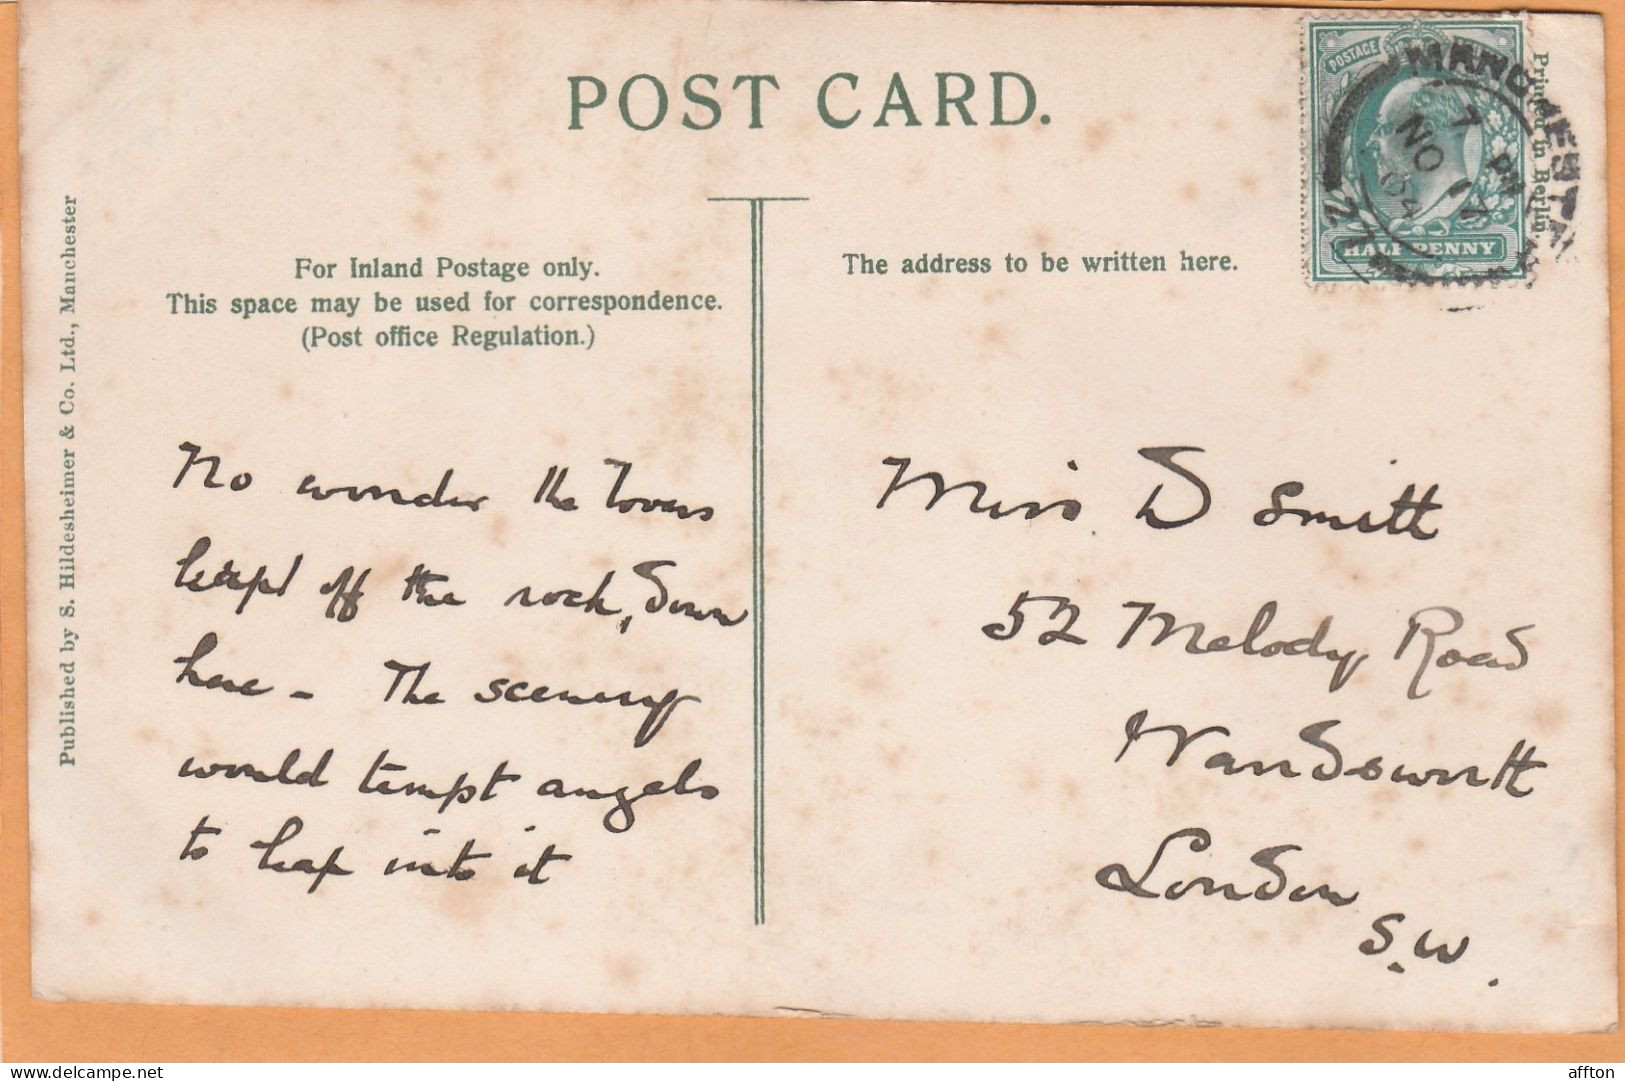 POST CARD.
For Inland Postage only.
This space may be used for correspondence.
(Post office Regulation.)
The address to be written here.
Published by S. Hildesheimer & Co. Ltd., Manchester
Printed in Berlin
POSTAGE
HALF PENNY
MANCHESTER
7 PM
NO 17
04
27
No wonder the lovers
leapt off the rock, down
here - The scenery
would tempt angels
to leap into it
Miss D Smith
52 Melody Road
Wandsworth
London
S.W.
affton